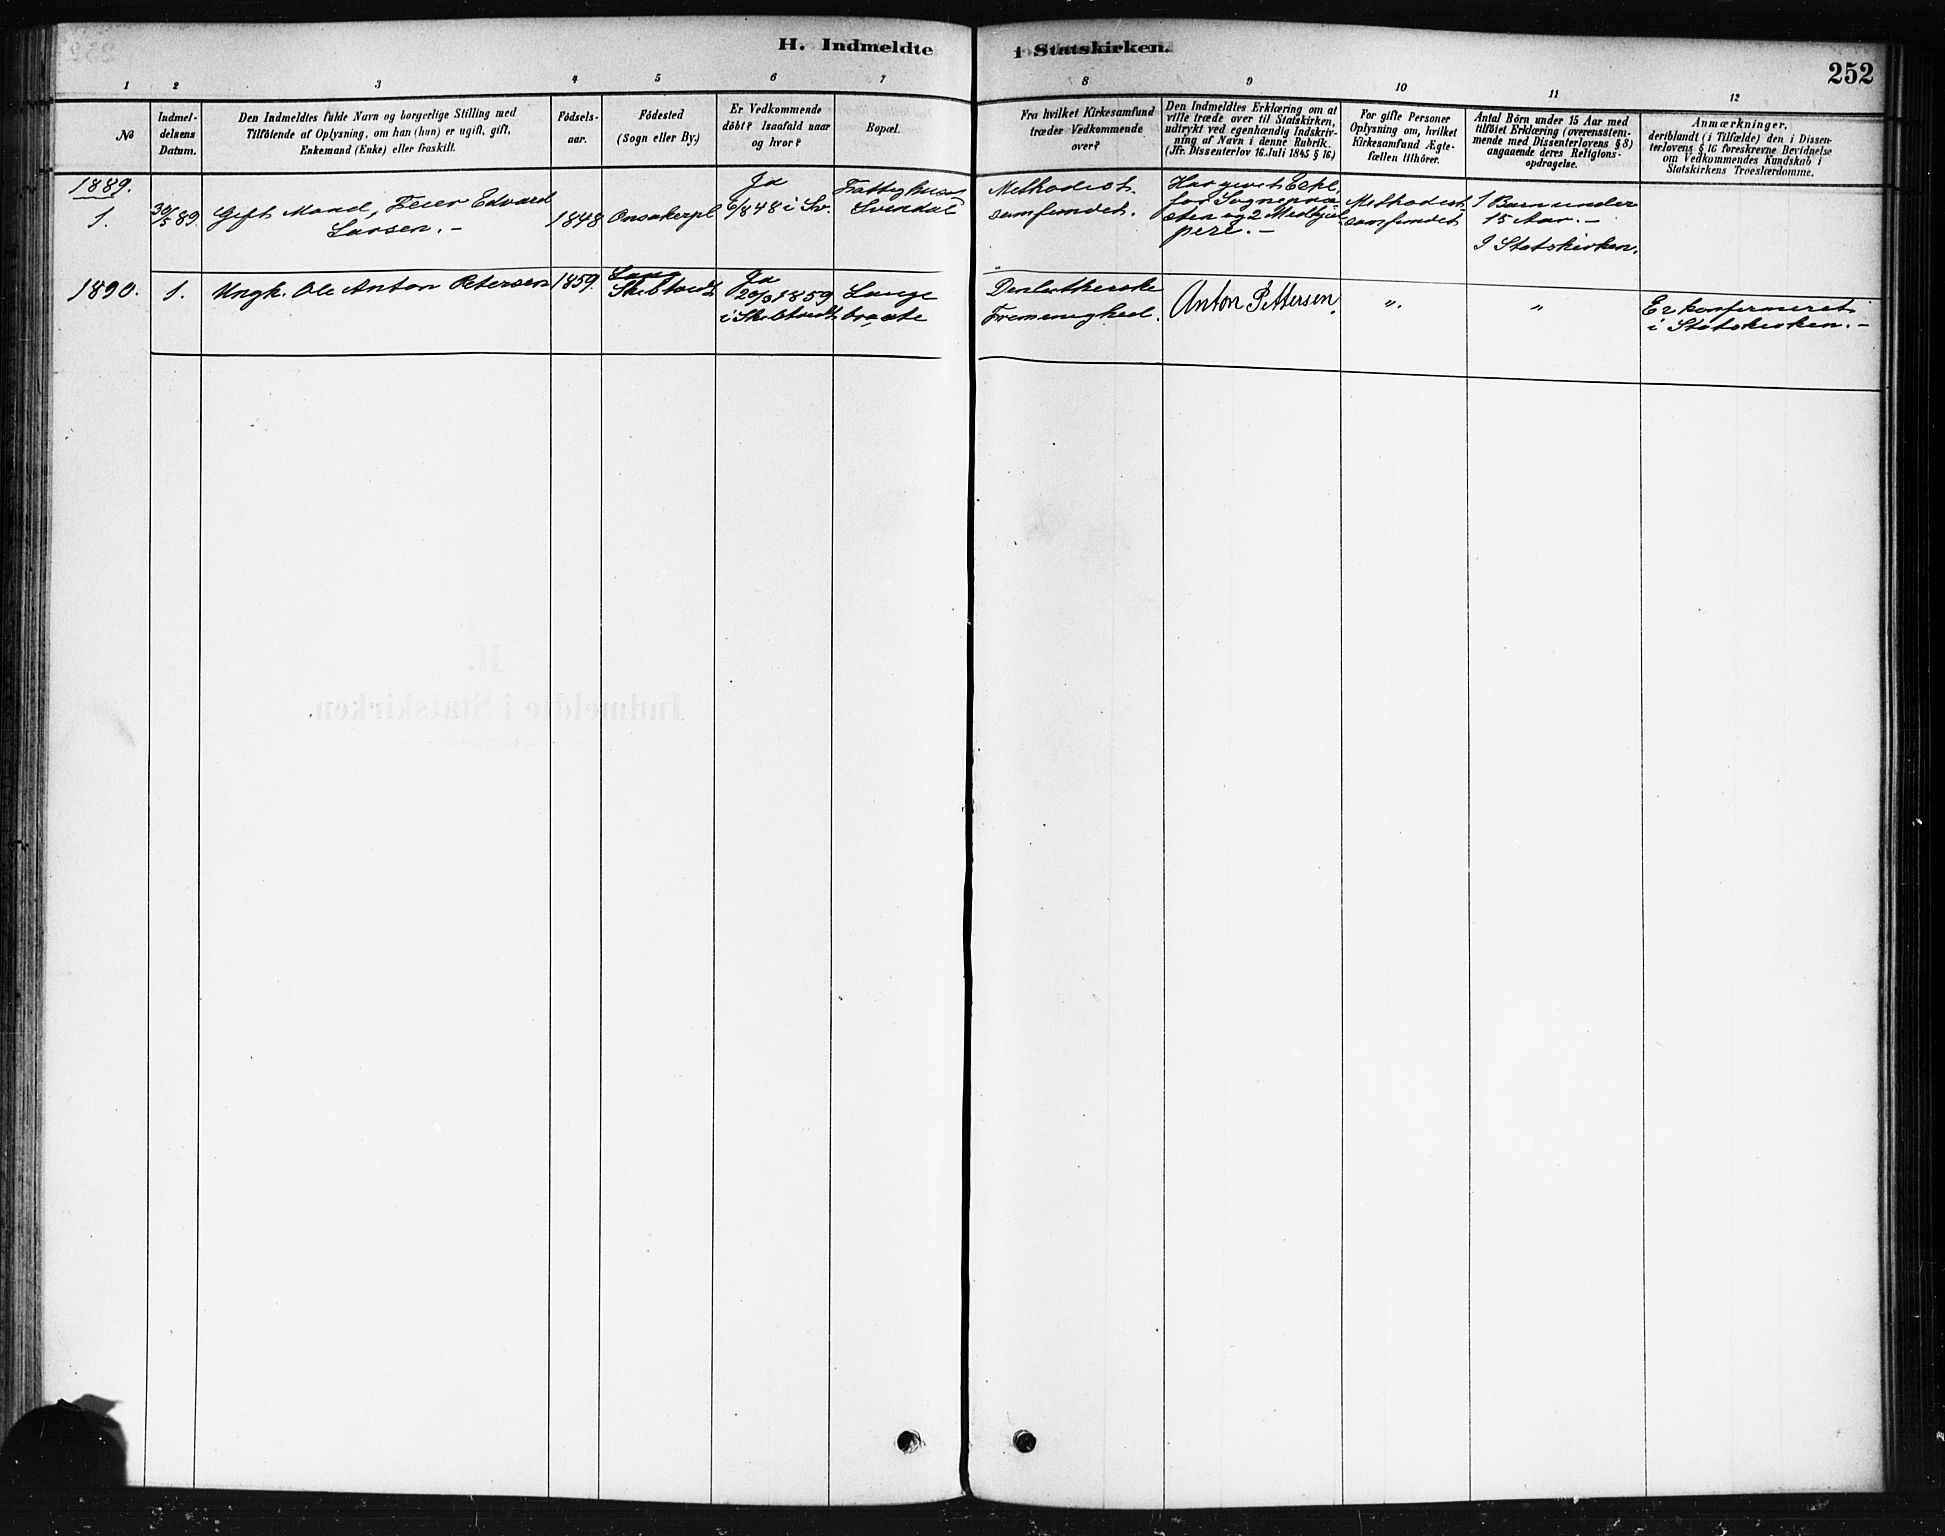 H. Indmeldte i Statskirken.
252
1 2 3 4 5 6 7 8 9 10 11 12
№
Indmel-
delsens
Datum.
Den Indmeldtes fulde Navn og borgerlige Stilling med
Tilföiende af Oplysning, om han (hun) er ugift, gift,
Enkemand (Enke) eller fraskilt.
Födsels-
aar.
Födested
(Sogn eller By.)
Er Vedkommende
döbt? Isaafald naar
og hvor?
Bopæl.
Fra hvilket Kirkesamfund
træder Vedkommende
over?
Den Indmeldtes Erklæring om at
ville træde over til Statskirken,
udtrykt ved egenhændig Indskriv-
ning af Navn i denne Rubrik.
(Jfr. Dissenterlov 16. Juli 1845 § 16.)
For gifte Personer
Oplysning om, hvilket
Kirkesamfund Ægte-
fællen tilhörer.
Antal Börn under 15 Aar med
tilföiet Erklæring (overensstem-
mende med Dissenterlovens § 8)
angaaende deres Religions-
opdragelse.
Anmærkninger,
deriblandt (i Tilfælde) den i Dissen-
terlovens § 16 foreskrevne Bevidnelse
om Vedkommendes Kundskab i
Statskirkens Troeslærdomme.
1889.
1.
30/5 89.
Gift Mand, Peier Edvard
Larsen. -
1848
Onsakerpl
Ja
6/8 48 i Sv.
Fattighuset
Svendal
Methodist-
samfundet.
Har givet Erkl.
for Sognepræ
sten og 2 Medhjæl
pere. -
Methodist
samfundet
1 Barn under
15 Aar. -
I Statskirken.
1890.
1.
Ungk. Ole Anton Petersen
1859.
Lang
Skibtvedt
Ja
20/3 1859
i Skibtvedt
Lange
braate
Den lutherske
Frimenighed.
Anton Pettersen.
"
"
Er konfirmeret
i Statskirken. -